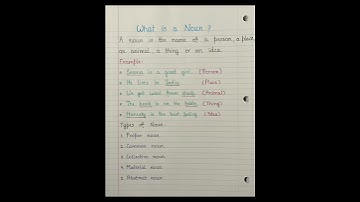 What is a Noun ?
A noun is the name of a person, a place,
an animal a thing or an idea.
Example:
Seema is a good girl. (Person)
He lives in India (Place)
We get wool from sheep (Animal)
The book is on the table (Thing)
Honesty is the best policy (Idea)
Types of Noun
1. Proper noun
2. Common noun
3. Collective noun
4. Material noun
5. Abstract noun